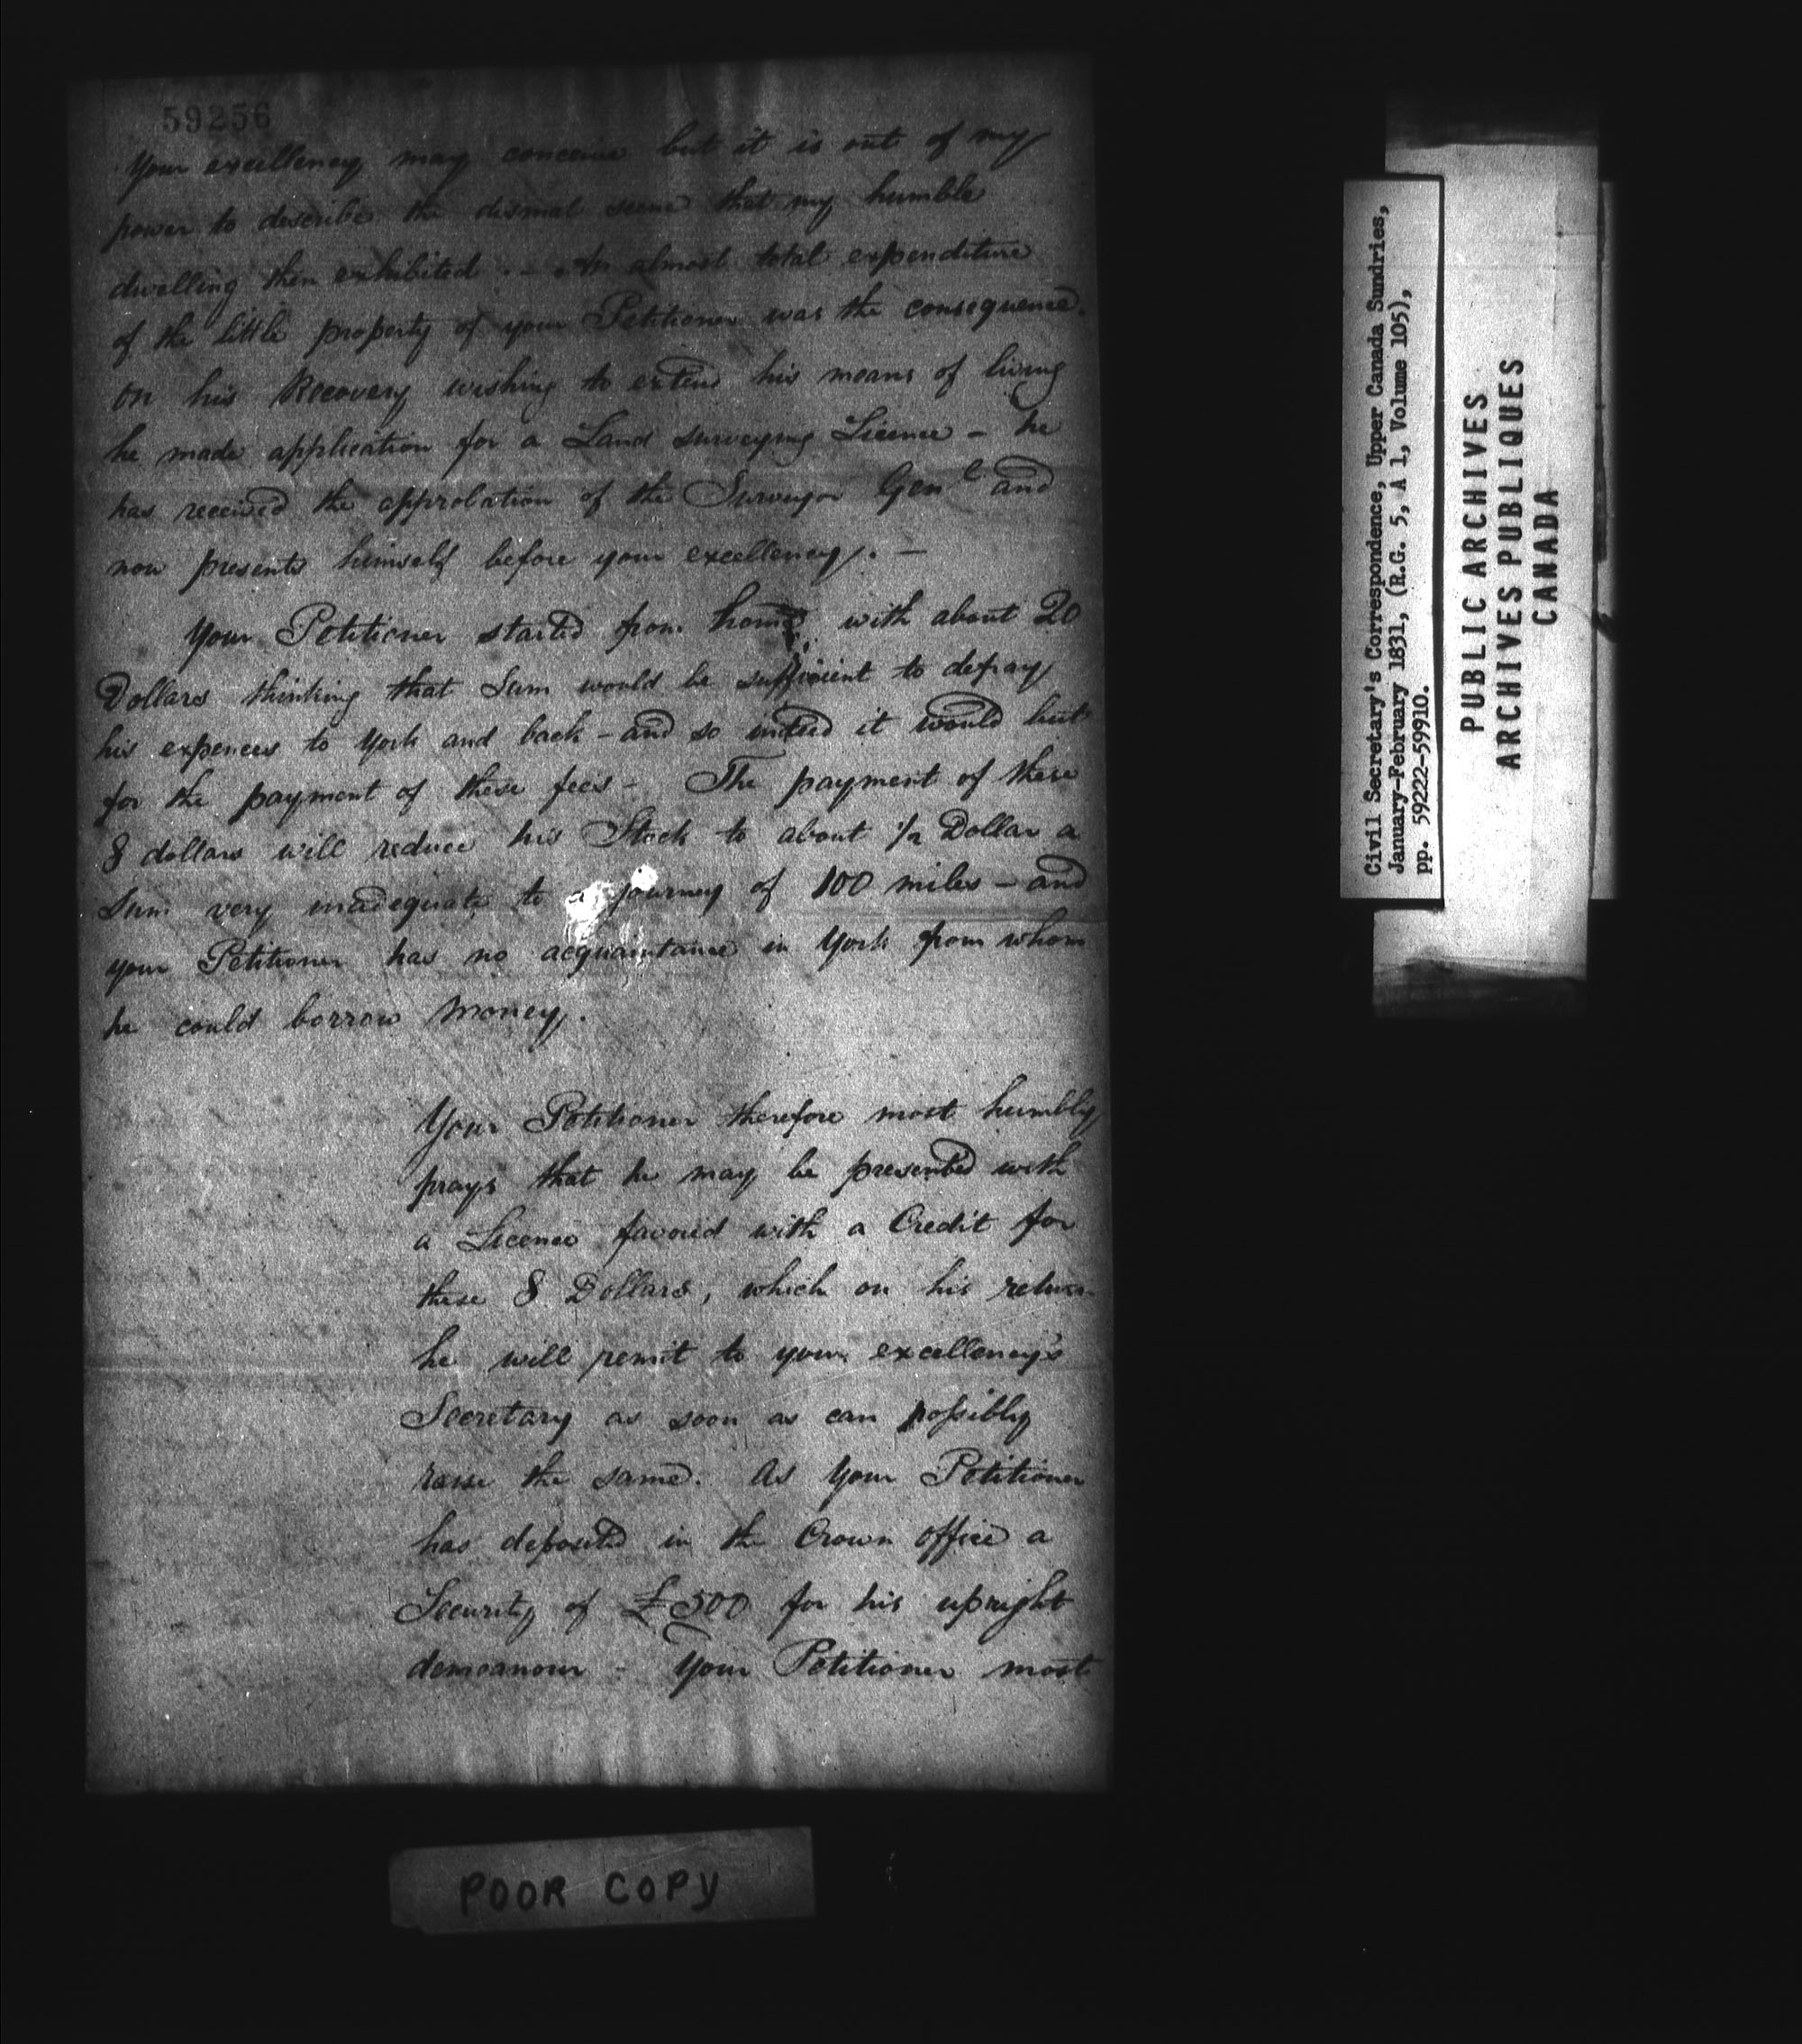 59256
Your excellency may conceive but it is out of my
power to describe the dismal scene that my humble
dwelling then exhibited . - An almost total expenditure
of the little property of your Petitioner was the consequence.
On his Recovery wishing to extend his means of living
he made application for a Land surveying Licence - he
has received the approbation of the Surveyor Genl and
now presents himself before your excellency. -
Your Petitioner started from home with about 20
Dollars thinking that Sum would be sufficient to defray
his expences to York and back - and so indeed it would but
for the payment of these fees - The payment of these
8 dollars will reduce his Stock to about 1/2 Dollar a
Sum very inadequate to a journey of 100 miles - and
your Petitioner has no acquaintance in York from whom
he could borrow money.
Your Petitioner therefore most humbly
prays that he may be presented with
a Licence favored with a Credit for
these 8 Dollars, which on his return
he will remit to your excellency's
Secretary as soon as can possibly
raise the same. As Your Petitioner
has deposited in the Crown office a
Security of £500 for his upright
demeanour - Your Petitioner most
POOR COPY
Civil Secretary's Correspondence, Upper Canada Sundries,
January-February 1831, (R.G. 5, A 1, Volume 105),
pp. 59222-59910.
PUBLIC ARCHIVES
ARCHIVES PUBLIQUES
CANADA